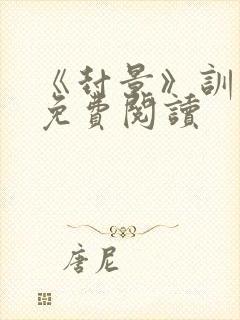 《封景》訓
免費閱讀
唐尼